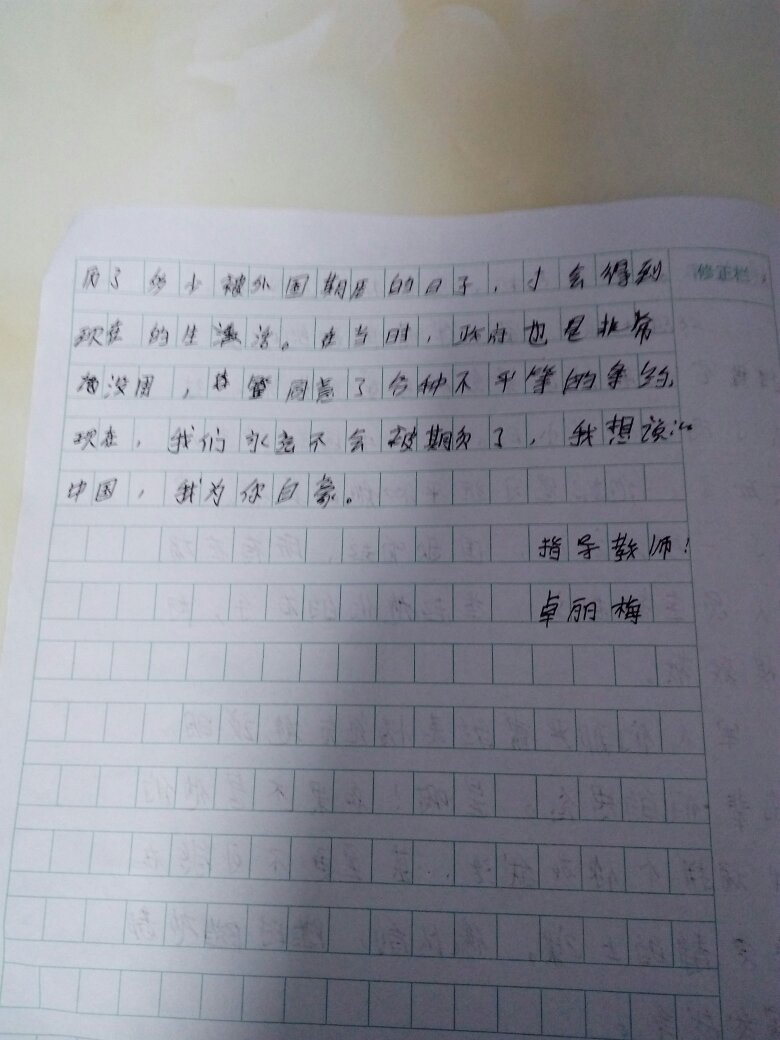 历了多少被外国期压的日子，才会得到
修正栏
现在的生活。在当时，政府也是非常
没用，尽管同意了各种不平等的条约，
现在，我们永远不会被期负了，我想说：“
中国，我为你自豪。
指导教师：
卓丽梅